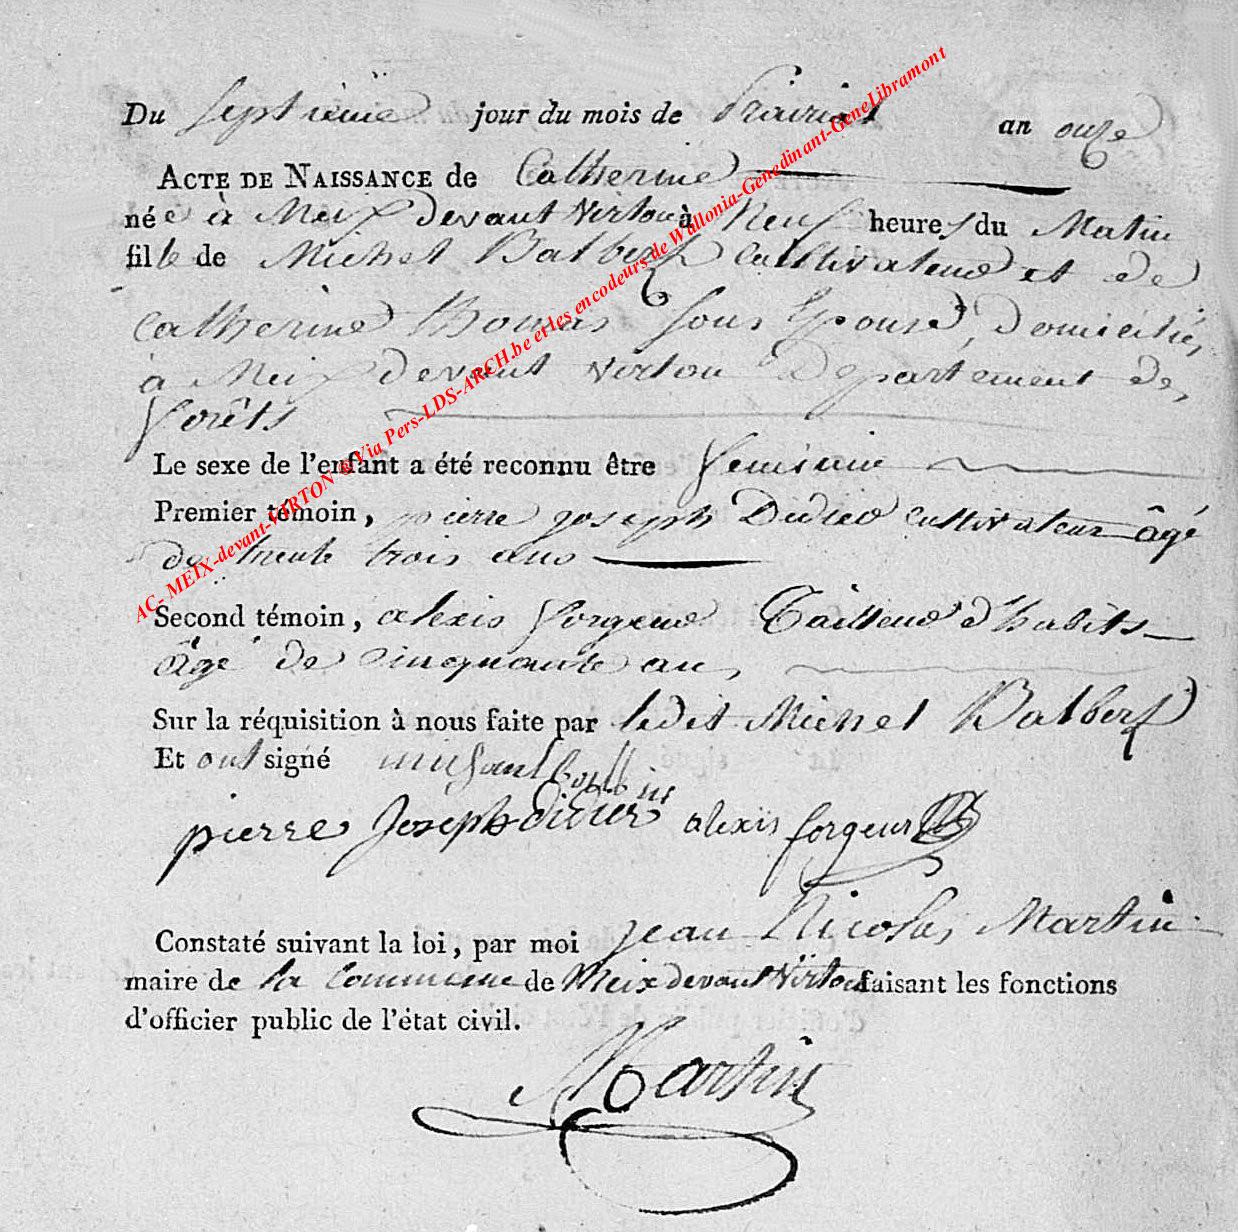 Du Septième jour du mois de Prairial an onze
ACTE DE NAISSANCE de Catherine
née à Meix devant Virton à Neuf heures du Matin
fille de Michel Balbeuf Cultivateur et de
Catherine Thomas Son Epouse, domiciliés
à Meix devant Virton Département de
forêts
Le sexe de l'enfant a été reconnu être feminin
Premier témoin, pierre joseph Didier cultivateur âgé
de trente trois ans
Second témoin, alexis forgeur Tailleur d'habits
âgé de Cinquante ans
Sur la réquisition à nous faite par ledit Michel
Et ont signé
pierre Joseph didier alexis forgeur
Constaté suivant la loi, par moi jean Nicolas Martin
maire de la Commune de Meix devant Virton faisant les fonctions
d'officier public de l'état civil.
Martin
AC- MEIX-devant-VIRTON @Via Pers-LDS-ARCH.be et les encodeurs de Wallonia-Genedinant-GeneLibramont